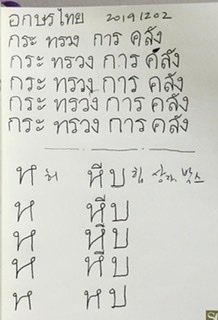 อักษรไทย 20191202
กระ ทรวง การ คลัง
กระ ทรวง การ คลัง
กระ ทรวง การ คลัง
กระ ทรวง การ คลัง
กระ ทรวง การ คลัง
ห หีบ
ห หีบ
ห หีบ
ห หีบ
ห หบ